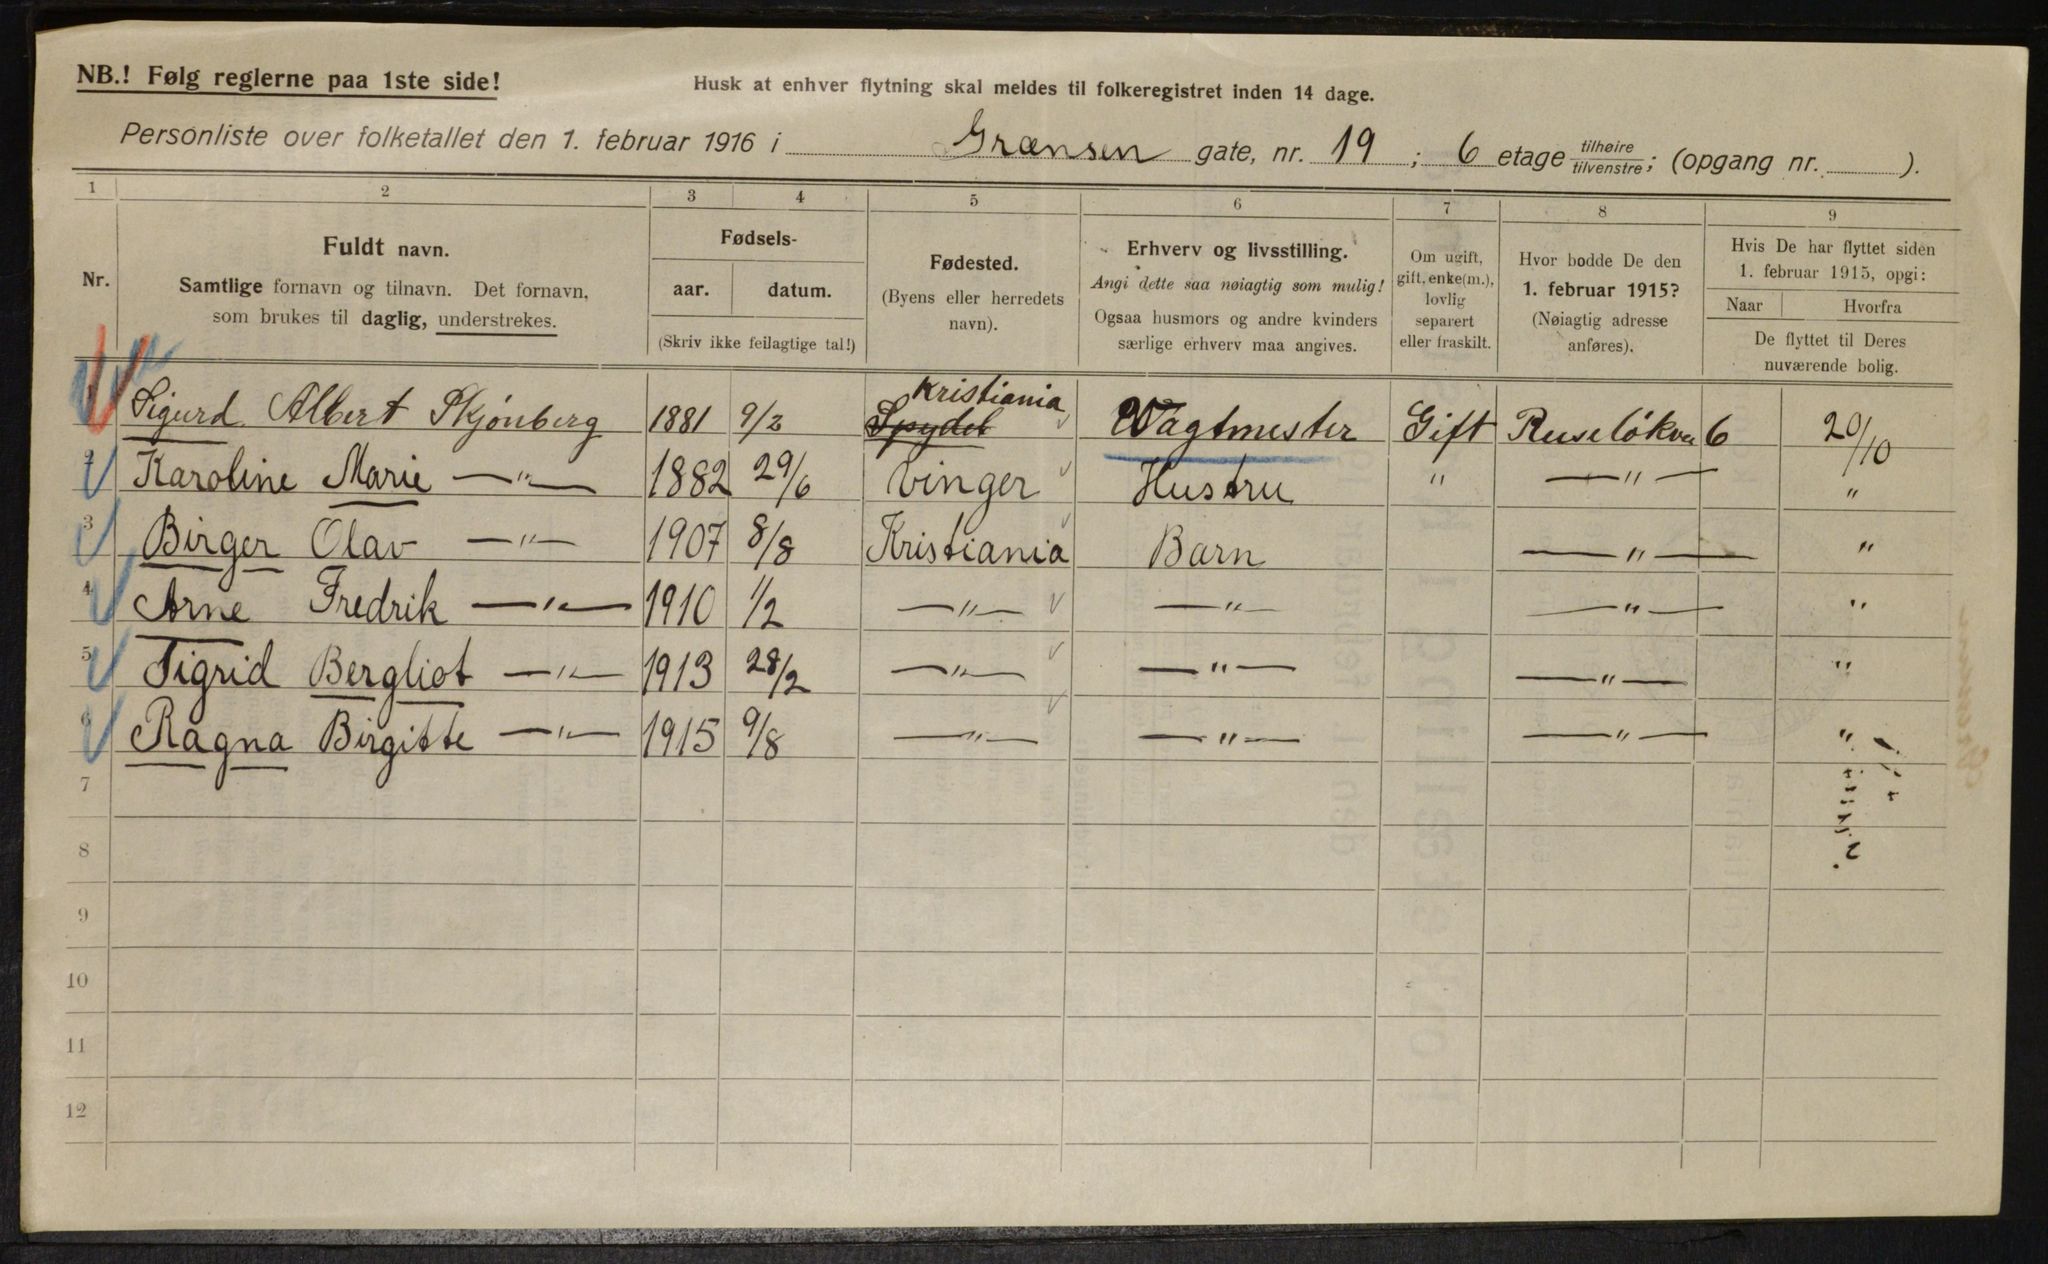 NB.! Følg reglerne paa 1ste side!
Husk at enhver flytning skal meldes til folkeregistret inden 14 dage.
Personliste over folketallet den 1. februar 1916 i Grænsen gate, nr. 19; 6 etage tilhøire tilvenstre; (opgang nr. ).
1 2 3 4 5 6 7 8 9
Nr.
Fuldt navn.
Samtlige fornavn og tilnavn. Det fornavn,
som brukes til daglig, understrekes.
Fødsels-
aar. datum.
(Skriv ikke feilagtige tal!)
Fødested.
(Byens eller herredets
navn).
Erhverv og livsstilling.
Angi dette saa nøiagtig som mulig!
Ogsaa husmors og andre kvinders
særlige erhverv maa angives.
Om ugift,
gift, enke(m.),
lovlig
separert
eller fraskilt.
Hvor bodde De den
1. februar 1915?
(Nøiagtig adresse
anføres).
Hvis De har flyttet siden
1. februar 1915, opgi:
Naar Hvorfra
De flyttet til Deres
nuværende bolig.
Kristiania
1 Sigurd Albert Skjønberg 1881 9/2 Spydeb Vagtmester Gift Ruseløkvn 6 20/10
2 Karoline Marie —"— 1882 29/6 Vinger Hustru " —"— "
3 Birger Olav —"— 1907 8/8 Kristiania Barn —"— "
4 Arne Fredrik —"— 1910 1/2 —"— —"— —"— "
5 Sigrid Bergliot —"— 1913 28/2 —"— —"— —"— "
6 Ragna Birgitte —"— 1915 9/8 —"— —"— —"— "
7
8
9
10
11
12